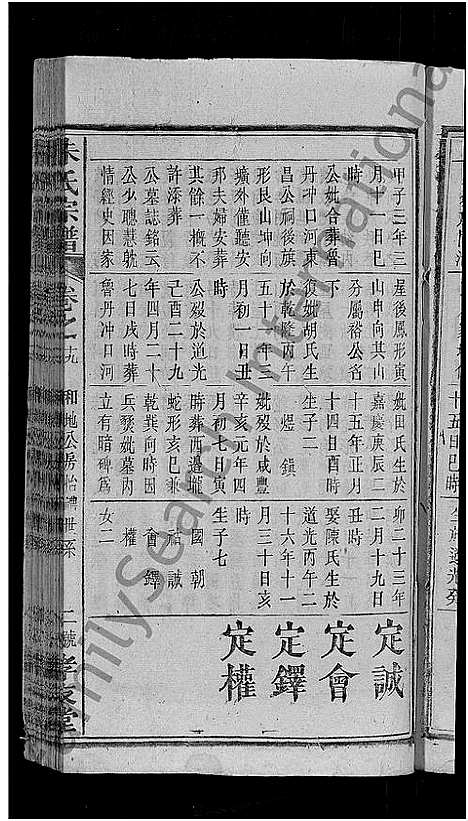 甲子三年三
月十一日巳
時
公妣合葬魯
丹沖口河東
昌公祠後旗
形艮山坤向
壙外僅聽安
邦夫婦安厝
其餘一概不
許添葬
公墓誌銘云
公少聰慧躭
情經史因家
屋後鳳形寅
山申向其山
分屬裕公名
下
復妣胡氏生
於乾隆丙午
五十一年三
月初一日丑
時
公歿於道光
己酉二十九
年四月二十
七日戌時葬
魯丹沖日河
妣田氏生於
嘉慶庚辰二
十五年正月
十四日酉時
生子二
煜 鎮
妣歿於咸豐
辛亥元年四
月初七日寅
時葬西邊壠
蛇形亥巳兼
乾巽向時因
兵燹妣墓內
立有暗碑爲
卯二十三年
二月十九日
丑時
娶陳氏生於
道光丙午二
十六年十一
月三十日亥
時
生子七
國 朝
祜 誠
會 鐸
權
女二
定誠
定會
定鐸
定權
朱氏宗譜 卷之十九 和地公房 世系 二號
FamilySearch International